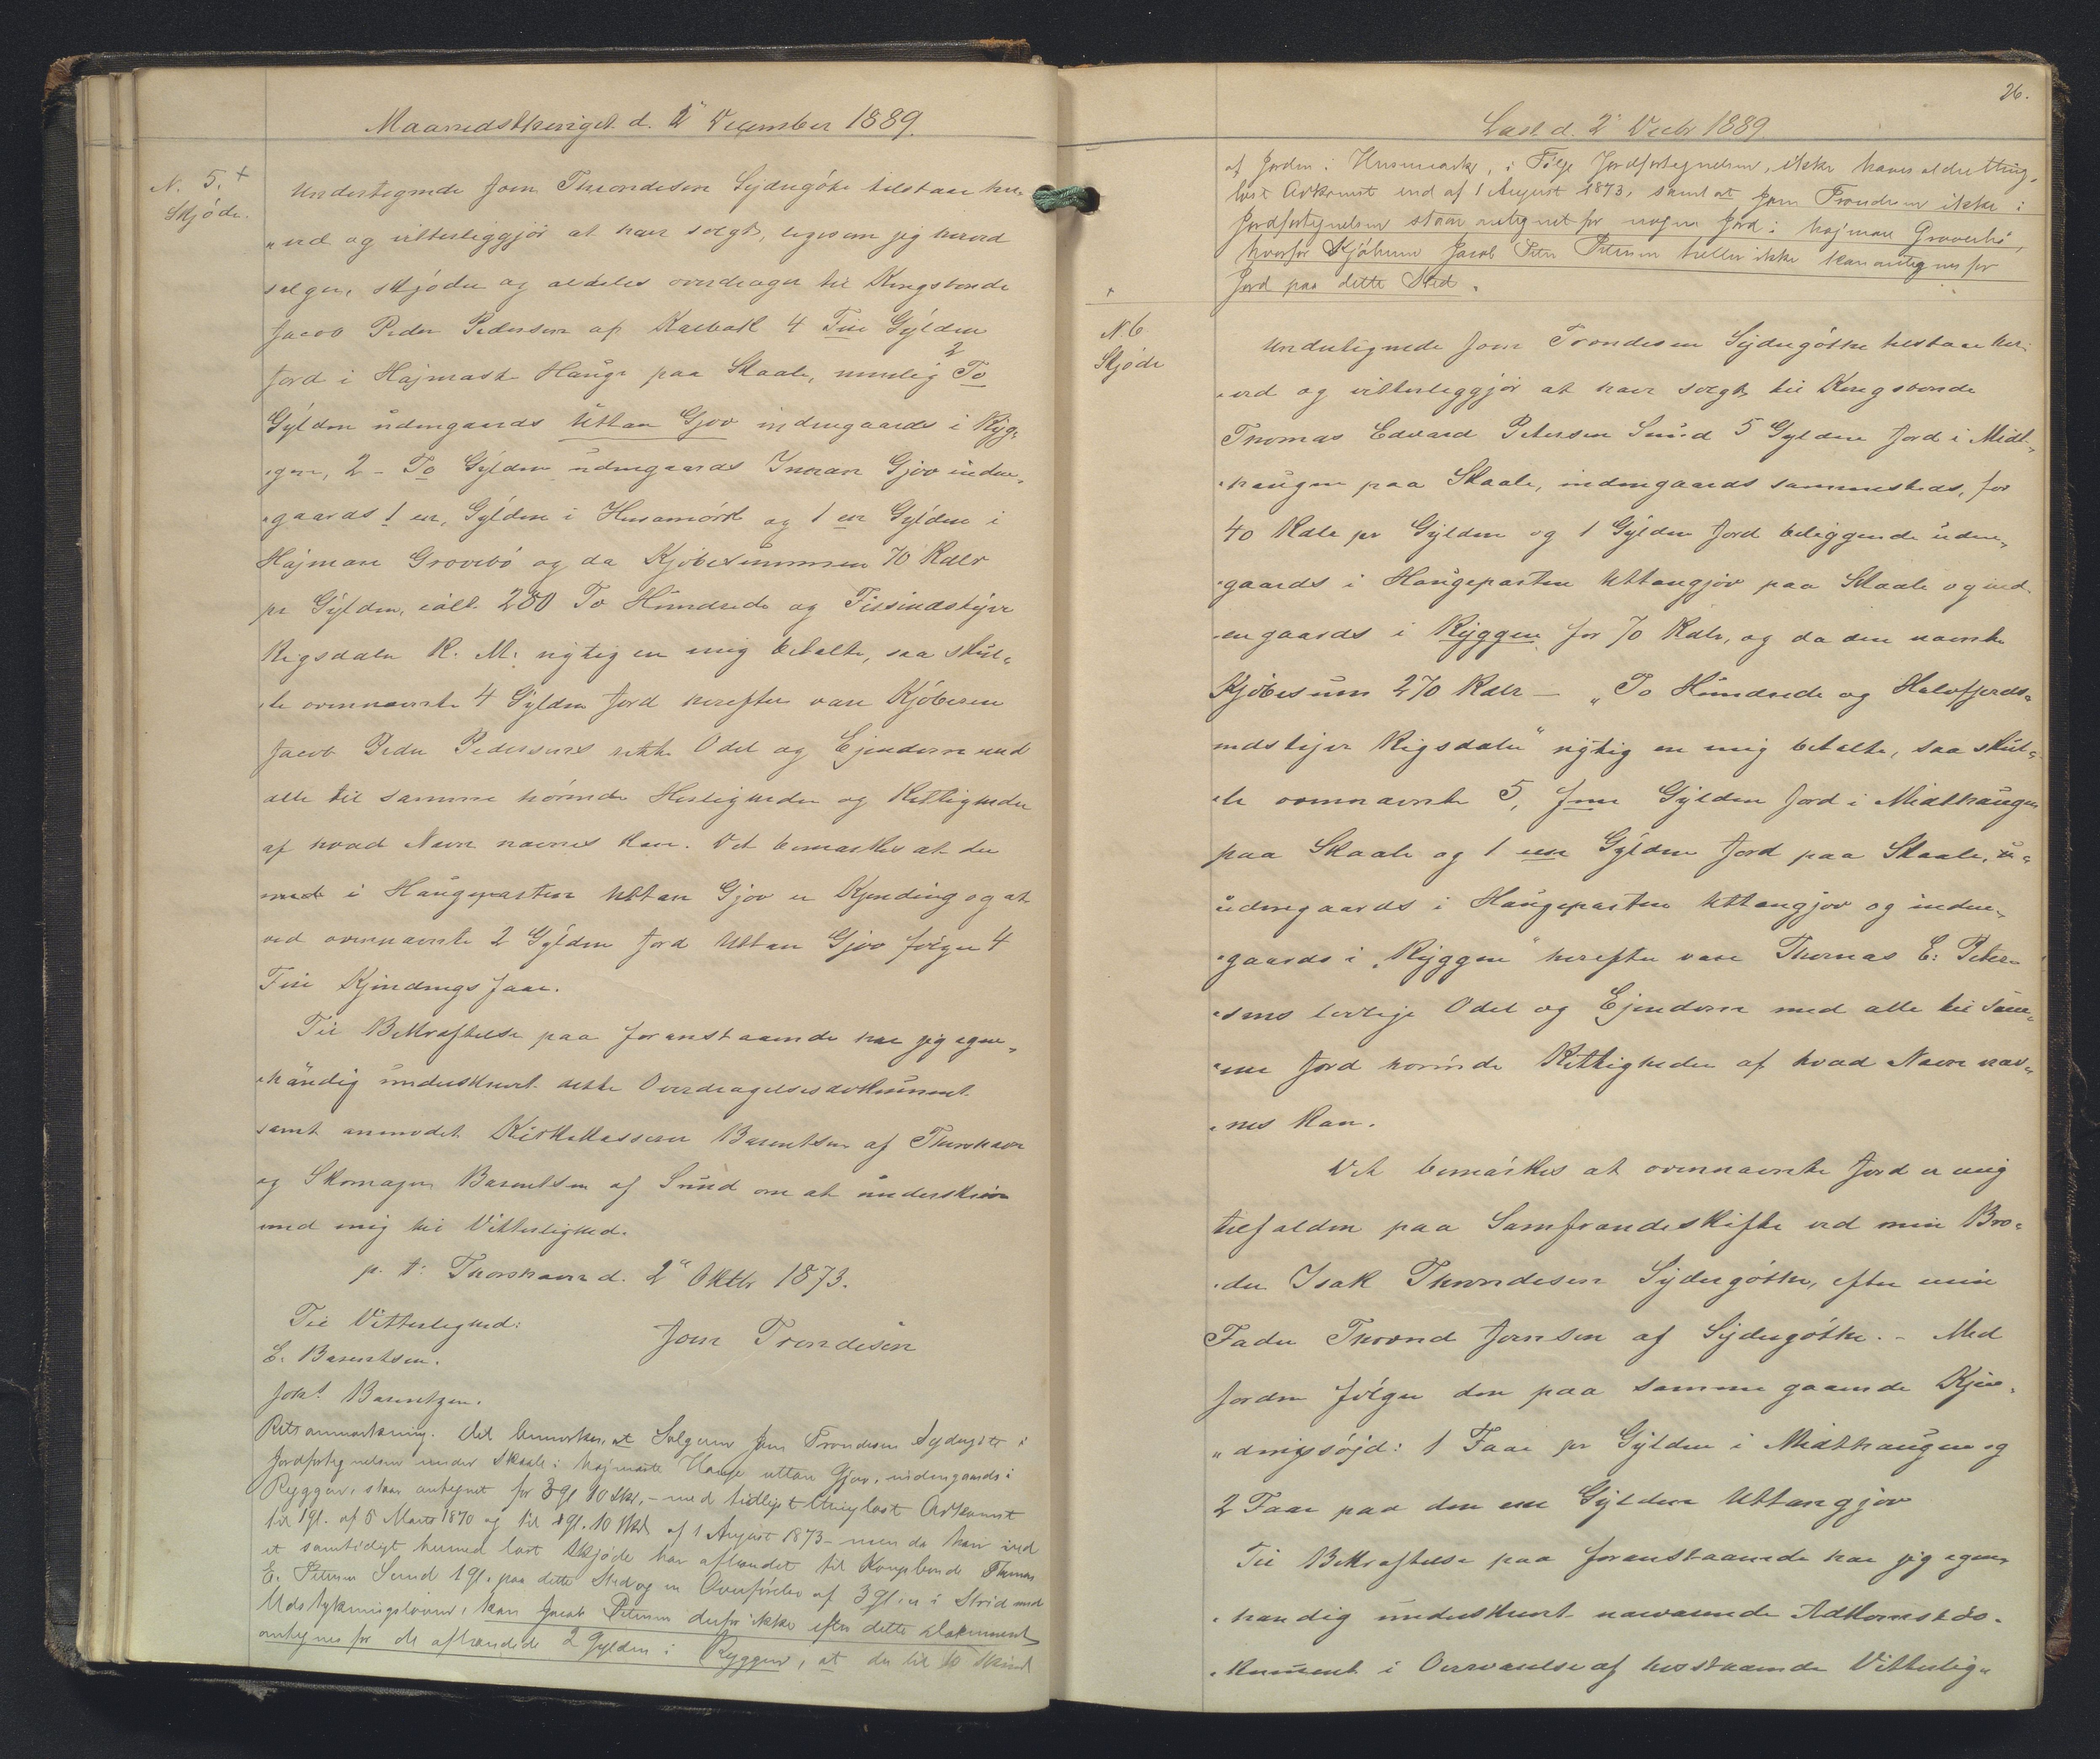 Maanedsthinget d. 2" December 1889.
N. 5. +
Skjøde.
Undertegnede Joen Throndesen Sydregøte tilstaar her-
„ved og vitterliggjør at have solgt, ligesom jeg herved
sælger, skjøder og aldeles overdrager til Kongsbonde
Jacob Peder Pedersen af Kalbak 4 Fire Gylden
Jord i Højmarke Hauge paa Skaale, nemlig 2 To
Gylden udengaards Uttan Gjov indengaards i Ryg-
„gen, 2 - To Gylden udengaards Innan Gjov inden-
„gaards 1 en, Gylden i Husamørk og 1 en Gylden i
Højmare Grovebø og da Kjøbesummen 70 Rdlr
pr Gylden, ialt 280 To Hundrede og Firsindstyve
Rigsdaler R. M. rigtig er mig betalte, saa skul-
„le ovennævnte 4 Gylden Jord herefter være Kjøberen
Jacob Peder Pedersens rette Odel og Ejendom med
alle til samme hørende Herligheder og Rettigheder
af hvad Navn nævnes kan. Det bemærkes at der
med i Haugeparten Uttan Gjov er Kjending og at
ved ovennævnte 2 Gylden Jord Uttan Gjov følger 4
Fire Kjendings Faar.
Til Bekræftelse paa foranstaaende har jeg egen-
„hændig underskrevet dette Overdragelsesdokument
samt anmodet Kirkekasserer Barentsen af Thorshavn
og Skomager Barentsen af Sund om at underskrive
med mig til Vitterlighed.
p. t. Thorshavn d. 2" Oktbr 1873.
Til Vitterlighed:
Joen Trondesen
E. Barentsen.
Joh? Barentzen.
Retsanmærkning. Det bemærkes, at Sælgeren Joen Trondesen Sydregøte i
Jordfortegnelsen under Skaale i højmarke Hauge uttan Gjov, indengaards i
Ryggen, staar antegnet for 3 gl 10 Sk, - med tidligst thinglæst Adkomst
til 1 gl. af 5 Marts 1870 og til 1 gl. 10 Skd af 1 August 1873 - men da han ved
et samtidigt hermed læst Skjøde har afhændet til Kongsbonde Thomas
E. Petersen Sund 1 gl. paa dette Sted og en Overførelse af 3 gl. er i Strid med
Udstykningsloven, kan Jacob Petersen derfor ikke efter dette Dokument
antegnes for de afhændede 2 Gylden i Ryggen, at der til 10 Skind
26.
Læst d. 2" Decbr 1889
af Jorden i Husamørk, i Følge Jordfortegnelsen, ikke haves ældre thing-
læst Adkomst end af 1 August 1873, samt at Joen Trondesen ikke i
Jordfortegnelsen staar antegnet for nogen Jord i højmare Grovebø,
hvorfor Kjøberen Jacob Peter Petersen heller ikke kan antegnes for
Jord paa dette Sted.
+
N. 6
Skjøde
Undertegnede Joen Trondesen Sydregøthe tilstaar her-
„ved og vitterliggjør at have solgt til Kongsbonde
Thomas Edvard Petersen Sund 5 Gylden Jord i Midt-
„haugen paa Skaale, indengaards sammesteds, for
40 Rdlr pr Gylden og 1 Gylden Jord beliggende uden-
„gaards i Haugeparten Uttangjov paa Skaale og ind-
„engaards i Ryggen for 70 Rdlr, og da den nævnte
Kjøbesum 270 Rdlr — „To Hundrede og Halvfjerds-
indstyve Rigsdaler" rigtig er mig betalte, saa skul-
„le ovennævnte 5, fem Gylden Jord i Midthaugen
paa Skaale og 1 een Gylden Jord paa Skaale, u-
udengaards i Haugeparten Uttangjov og inden-
„gaards i „Ryggen" herefter være Thomas E. Peter-
„sens lovlige Odel og Ejendom med alle til sam-
„me Jord hørende Rettigheder af hvad Navn næv-
„nes kan.
Det bemærkes at ovennævnte Jord er mig
tilfalden paa Samfrændeskifte ved min Bro-
„der Isak Throndesen Sydergøthe, efter min
Fader Thrond Joensen af Sydergøthe. - Med
Jorden følger den paa samme gaaende Kjen-
„dingsøjd: 1 Faar pr Gylden i Midthaugen og
2 Faar paa den ene Gylden Uttangjov
Til Bekræftelse paa foranstaaende har jeg egen-
„hændig underskrevet nærværende Adkomstdo-
„kument i Overværelse af hosstaaende Vitterlig-